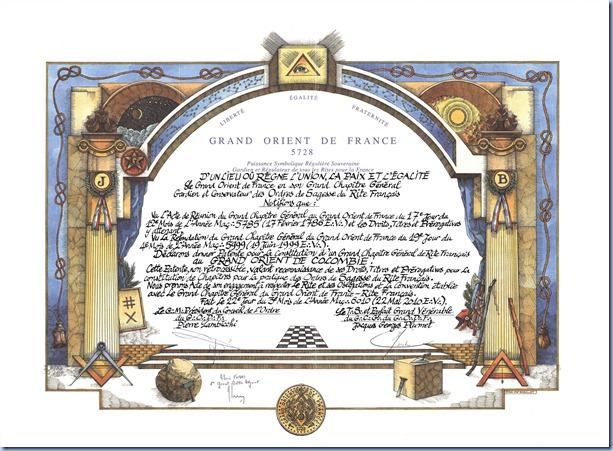 LIBERTÉ
ÉGALITÉ
FRATERNITÉ
GRAND ORIENT DE FRANCE
5728
Puissance Symbolique Régulière Souveraine
Gardien et Régulateur de tous les Rites pour la France
D'UN LIEU OÙ RÈGNE L'UNION, LA PAIX ET L'ÉGALITÉ
Le Grand Orient de France en son Grand Chapitre Général
Gardien et Conservateur des Ordres de Sagesse du Rite Français
Notifions que :
Vu l'Acte de Réunion du Grand Chapitre Général au Grand Orient de France du 17e Jour du
12e Mois de l'Année Maç∴ 5785 (17 Février 1786 E∴V∴) et les Droits, Titres et Prérogatives
y afférant,
Vu la Refondation du Grand Chapitre Général du Grand Orient de France du 19e Jour du
Mois de l'Année Maç∴ 5999 (19 Juin 1999 E∴V∴),
Déclarons donner Patente pour la Constitution d'un Grand Chapitre Général de Rite Français
au GRAND ORIENT DE COLOMBIE.
Cette Patente, non rétrocessible, valant reconnaissance de ses Droits, Titres et Prérogatives pour la
constitution de Chapitres pour la pratique des Ordres de Sagesse du Rite Français.
Nous prenons Acte de son engagement à respecter le Rite et ses Obligations et la Convention établie
avec le Grand Chapitre Général du Grand Orient de France - Rite Français.
Fait le 22e Jour du 3e Mois de l'Année Maç∴ 6010 (22 Mai 2010 E∴V∴).
Le G∴M∴ Président du Conseil de l'Ordre
du G∴O∴D∴F∴
Pierre Lambicchi
Le T∴S∴ et Parfait Grand Vénérable
du G∴C∴G∴ du G∴O∴D∴F∴
Jacques Georges Plumet
J
B